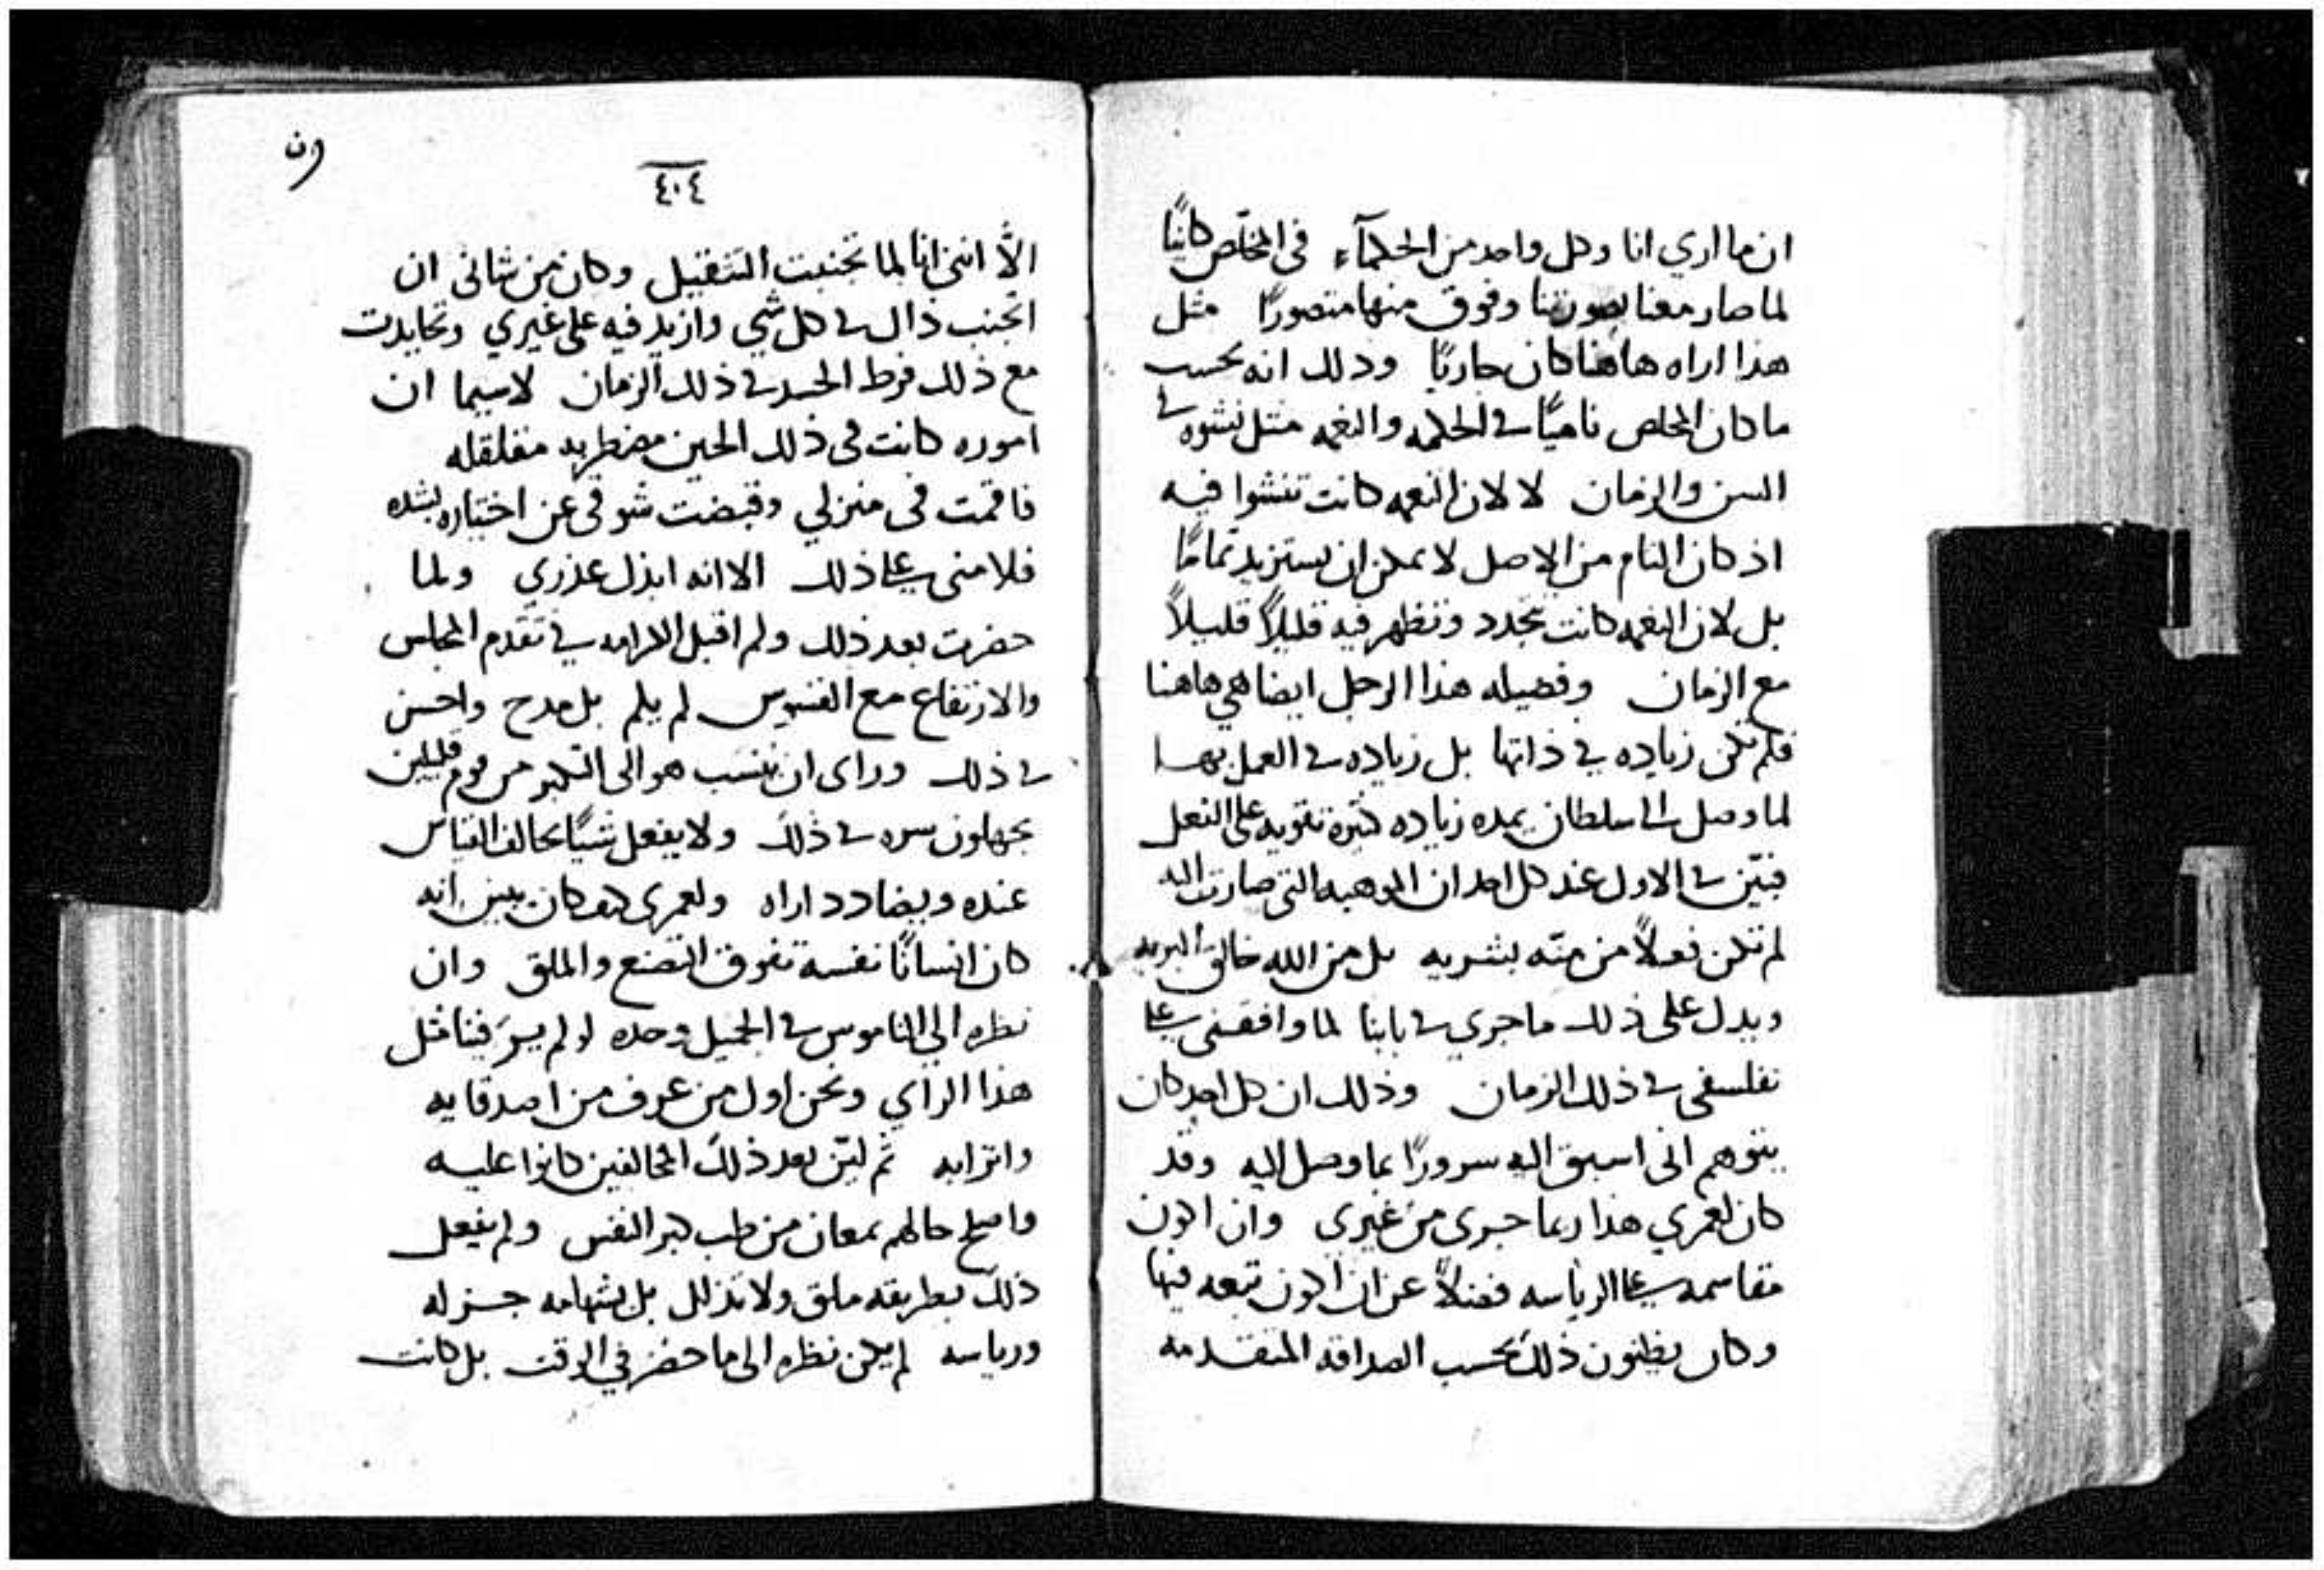 ان ما اري انا وكل واحد من الحكمآء في المخلّص كانيًا
لما صار معنا بصورتنا وفوق منها متصورًا مثل
هذا اراه هاهنا كان جاريًا وذلك انه بحسب
ما كان المخلص ناميًا في الحكمه والنعمه مثل نشوه في
السن والزمان لا لان النعمه كانت تنشوا فيه
اذ كان التام من الاصل لا يمكن ان يستزيد تمامًا
بل لان النعمه كانت تجدد وتظهر فيه قليلاً قليلاً
مع الزمان وفضيله هذا الرجل ايضا هي هاهنا
فلم تكن زياده في ذاتها بل زياده في العمل بها
لما وصل الى سلطان يمده زياده كثيرة تقويه على الفعل
فبيّن في الاول عند كل احد ان الموهبه التي صارت اليه
لم تكن فعلاً من منّه بشريه بل من الله خالق البريه
ويدل على ذلك ما جرى في بابنا لما وافقني على
تفلسفي في ذلك الزمان وذلك ان كل احد كان
يتوهم انى اسبق اليه سرورًا بما وصل اليه وقد
كان لعمري هذا ربما جرى من غيري وان اكون
مقاسمه على الرياسه فضلاً عن ان اكون تبعه فيها
وكان يظنون ذلك بحسب الصداقه المتقدمه
٤٠٤
الاّ انني انا لما تجنبت التثقيل وكان من شاني ان
اتجنب ذاك في كل شي وازيد فيه على غيري وتحايدت
مع ذلك فرط الحسد في ذلك الزمان لاسيما ان
اموره كانت في ذلك الحين مضطربه متقلقله
فاقمت في منزلي وقبضت شوقي عن اختياره بشده
فلامني على ذلك الا انه ابذل عذري ولما
حضرت بعد ذلك ولم اقبل الكرامه في تقدم المجلس
والارتفاع مع القسوس لم يلم بل مدح واحسن
في ذلك وراى ان ينسب هو الى التكبر من قوم قليلين
يجهلون سره في ذلك ولا يفعل شيًا يخالف القياس
عنده ويضادد اراه ولعمري كيف كان يبين انه
كان انسانًا نفسه تفوق التصنع والملق وان
نظره الى الناموس في الجميل وحده لو لم يسر فينا مثل
هذا الراي ونحن اول من عرف من اصدقايه
واترابه ثم ليّن بعد ذلك المخالفين كانوا عليه
واصلح حالهم بمعان من طب كبر النفس ولم يفعل
ذلك بطريقه ملق ولا تذلل بل بشهامه جزله
ورياسه لم يكن نظره الى ما حضر في الوقت بل كانت